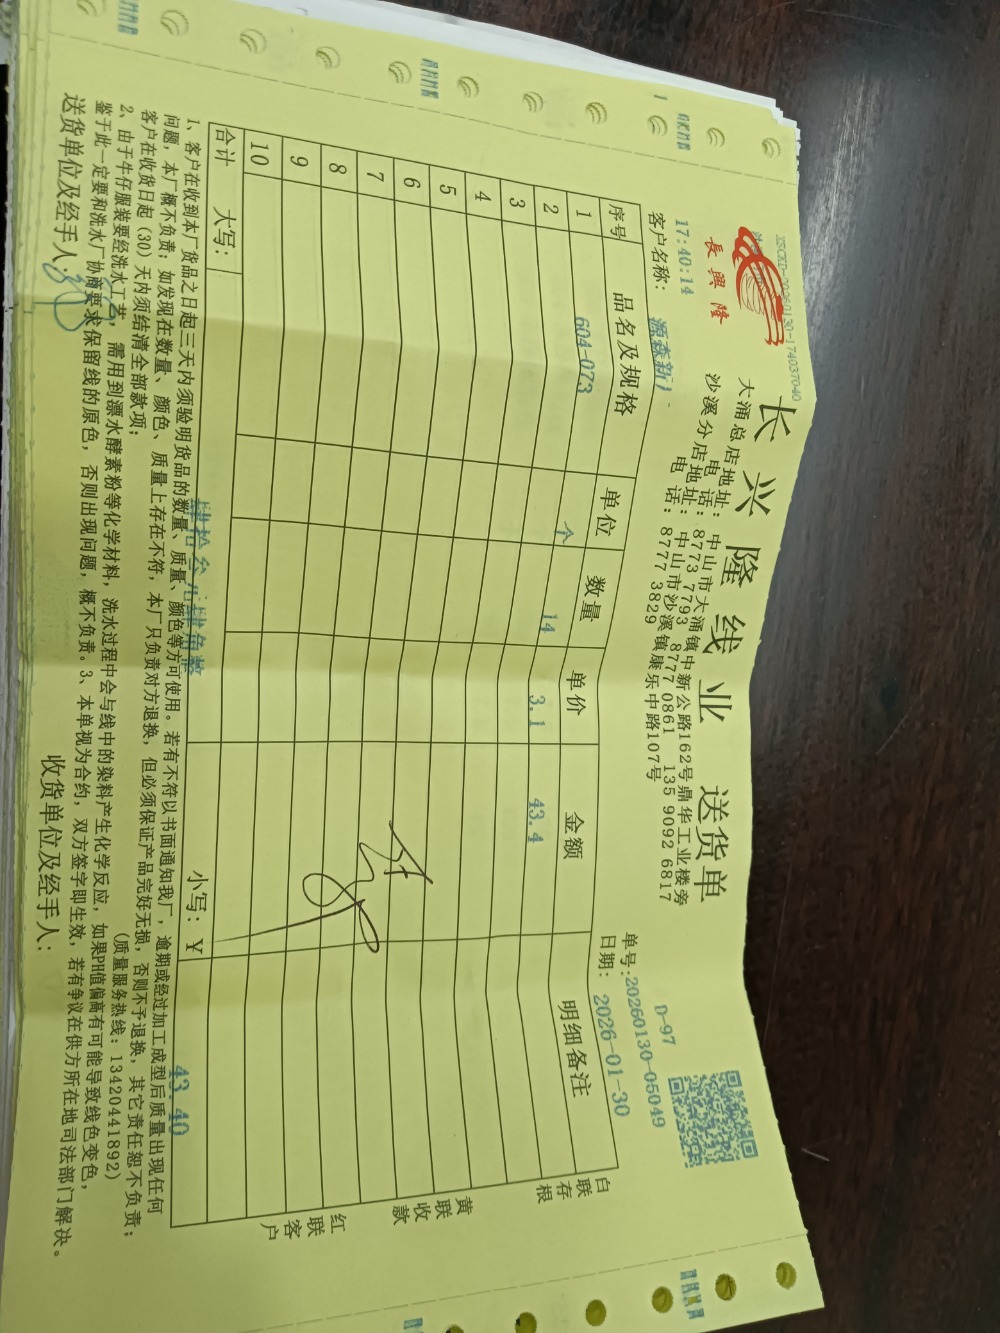 XSCKD-20260130-174037040
長興隆
长兴隆线业 送货单
大涌总店地址：中山市大涌镇中新公路162号鼎华工业楼旁
电 话：8773 7793 8777 0861 135 9092 6817
沙溪分店地址：中山市沙溪镇康乐中路107号
电 话：8777 3829
D-97
17:40:14
单号:20260130-05049
客户名称： 源森新
日期： 2026-01-30
序号 品名及规格 单位 数量 单价 金额 明细备注
1 604-073 个 14 3.1 43.4
2
3
4
5
6
7
8
9
10
合计 大写： 肆拾叁元肆角整 小写：￥ 43.40
白联存根
黄联收款
红联客户
1、客户在收到本厂货品之日起三天内须验明货品的数量、质量、颜色等方可使用。若有不符以书面通知我厂，逾期或经过加工成型后质量出现任何
问题，本厂概不负责；如发现在数量、颜色、质量上存在不符，本厂只负责对方退换，但必须保证产品完好无损，否则不予退换，其它责任恕不负责；
客户在收货日起(30)天内须结清全部款项；
(质量服务热线：13420441892)
2、由于牛仔服装要经洗水工艺，需用到漂水酵素粉等化学材料，洗水过程中会与线中的染料产生化学反应，如果PH值偏高有可能导致线色变色，
鉴于此一定要和洗水厂协商要求保留线的原色，否则出现问题，概不负责。3、本单视为合约，双方签字即生效，若有争议在供方所在地司法部门解决。
送货单位及经手人：
收货单位及经手人：